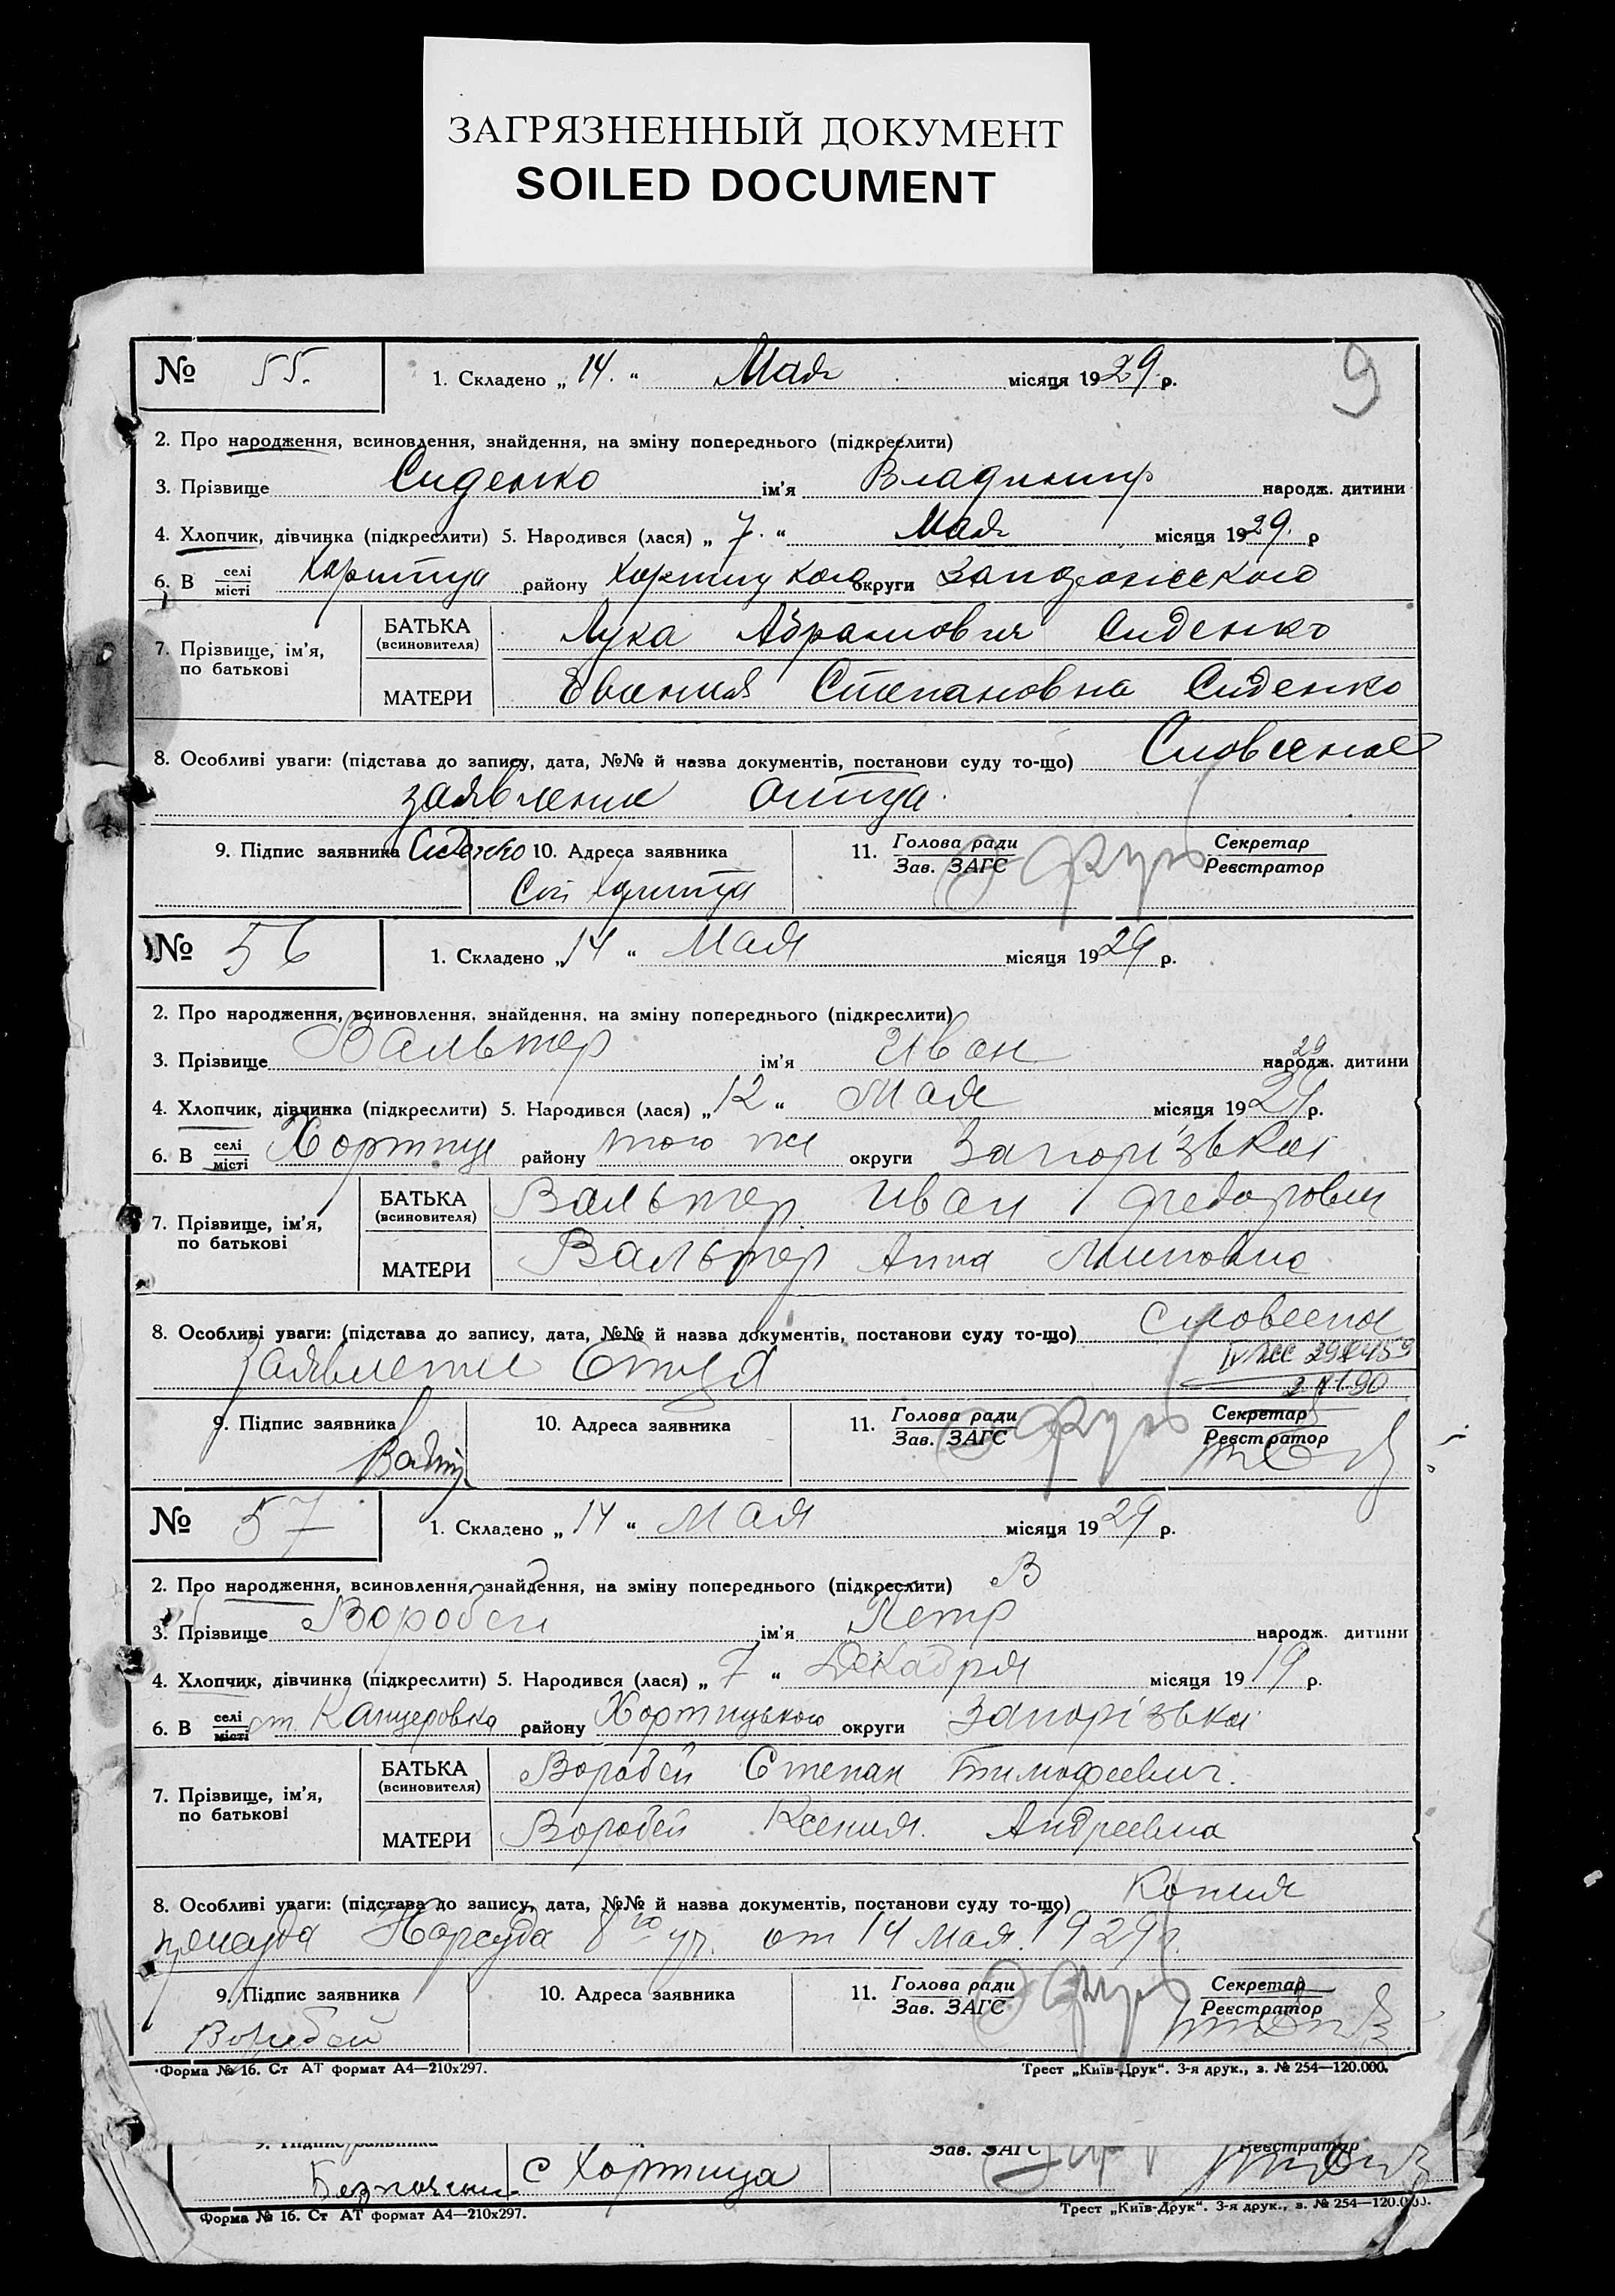 ЗАГРЯЗНЕННЫЙ ДОКУМЕНТ
SOILED DOCUMENT
9
№ 55. 1. Складено „ 14. “ Мая місяця 1929. р.
2. Про народження, всиновлення, знайдення, на зміну попереднього (підкреслити)
3. Прізвище Сиденко ім’я Владимир народж. дитини
4. Хлопчик, дівчинка (підкреслити) 5. Народився (лася) „ 7. “ Мая місяця 1929. р
6. В селі/місті Хортица району Хортицкого округи Запорожского
7. Прізвище, ім’я, по батькові
БАТЬКА (всиновителя) Лука Абрамович Сиденко
МАТЕРИ Степановна Сиденко
8. Особливі уваги: (підстава до запису, дата, №№ й назва документів, постанови суду то-що) Словесное
заявление отца.
9. Підпис заявника Сиденко 10. Адреса заявника 11. Голова ради/Зав. ЗАГС Секретар/Реєстратор
Хортица
№ 56 1. Складено „ 14 “ Мая місяця 1929 р.
2. Про народження, всиновлення, знайдення, на зміну попереднього (підкреслити)
3. Прізвище Вальтер ім’я Иван народж. дитини
29
4. Хлопчик, дівчинка (підкреслити) 5. Народився (лася) „ 12 “ Мая місяця 1929 р.
6. В селі/місті Хортице району того же округи Запорізької
7. Прізвище, ім’я, по батькові
БАТЬКА (всиновителя) Вальтер Иван Федорович
МАТЕРИ Вальтер Анна
8. Особливі уваги: (підстава до запису, дата, №№ й назва документів, постанови суду то-що) Словесное
заявление Отца
9. Підпис заявника 10. Адреса заявника 11. Голова ради/Зав. ЗАГС Секретар/Реєстратор
№ 57 1. Складено „ 14 “ Мая місяця 1929 р.
2. Про народження, всиновлення, знайдення, на зміну попереднього (підкреслити) В
3. Прізвище Воробей ім’я Петр народж. дитини
4. Хлопчик, дівчинка (підкреслити) 5. Народився (лася) „ 7 “ Декабря місяця 1919 р.
6. В селі/місті ст. Канцеровка району Хортицького округи Запорізької
7. Прізвище, ім’я, по батькові
БАТЬКА (всиновителя) Воробей Степан Тимофеевич.
МАТЕРИ Воробей Ксения Андреевна
8. Особливі уваги: (підстава до запису, дата, №№ й назва документів, постанови суду то-що) Копия
Нарсуда 8го уч. от 14 Мая 1929 г.
9. Підпис заявника 10. Адреса заявника 11. Голова ради/Зав. ЗАГС Секретар/Реєстратор
Воробей
Форма № 16. Ст АТ формат А4—210х297. Трест „Київ-Друк“. 3-я друк., з. № 254—120.000.
9. Підпис заявника Зав. ЗАГС Реєстратор
с Хортица
Форма № 16. Ст АТ формат А4—210х297. Трест „Київ-Друк“. 3-я друк., з. № 254—120.000.